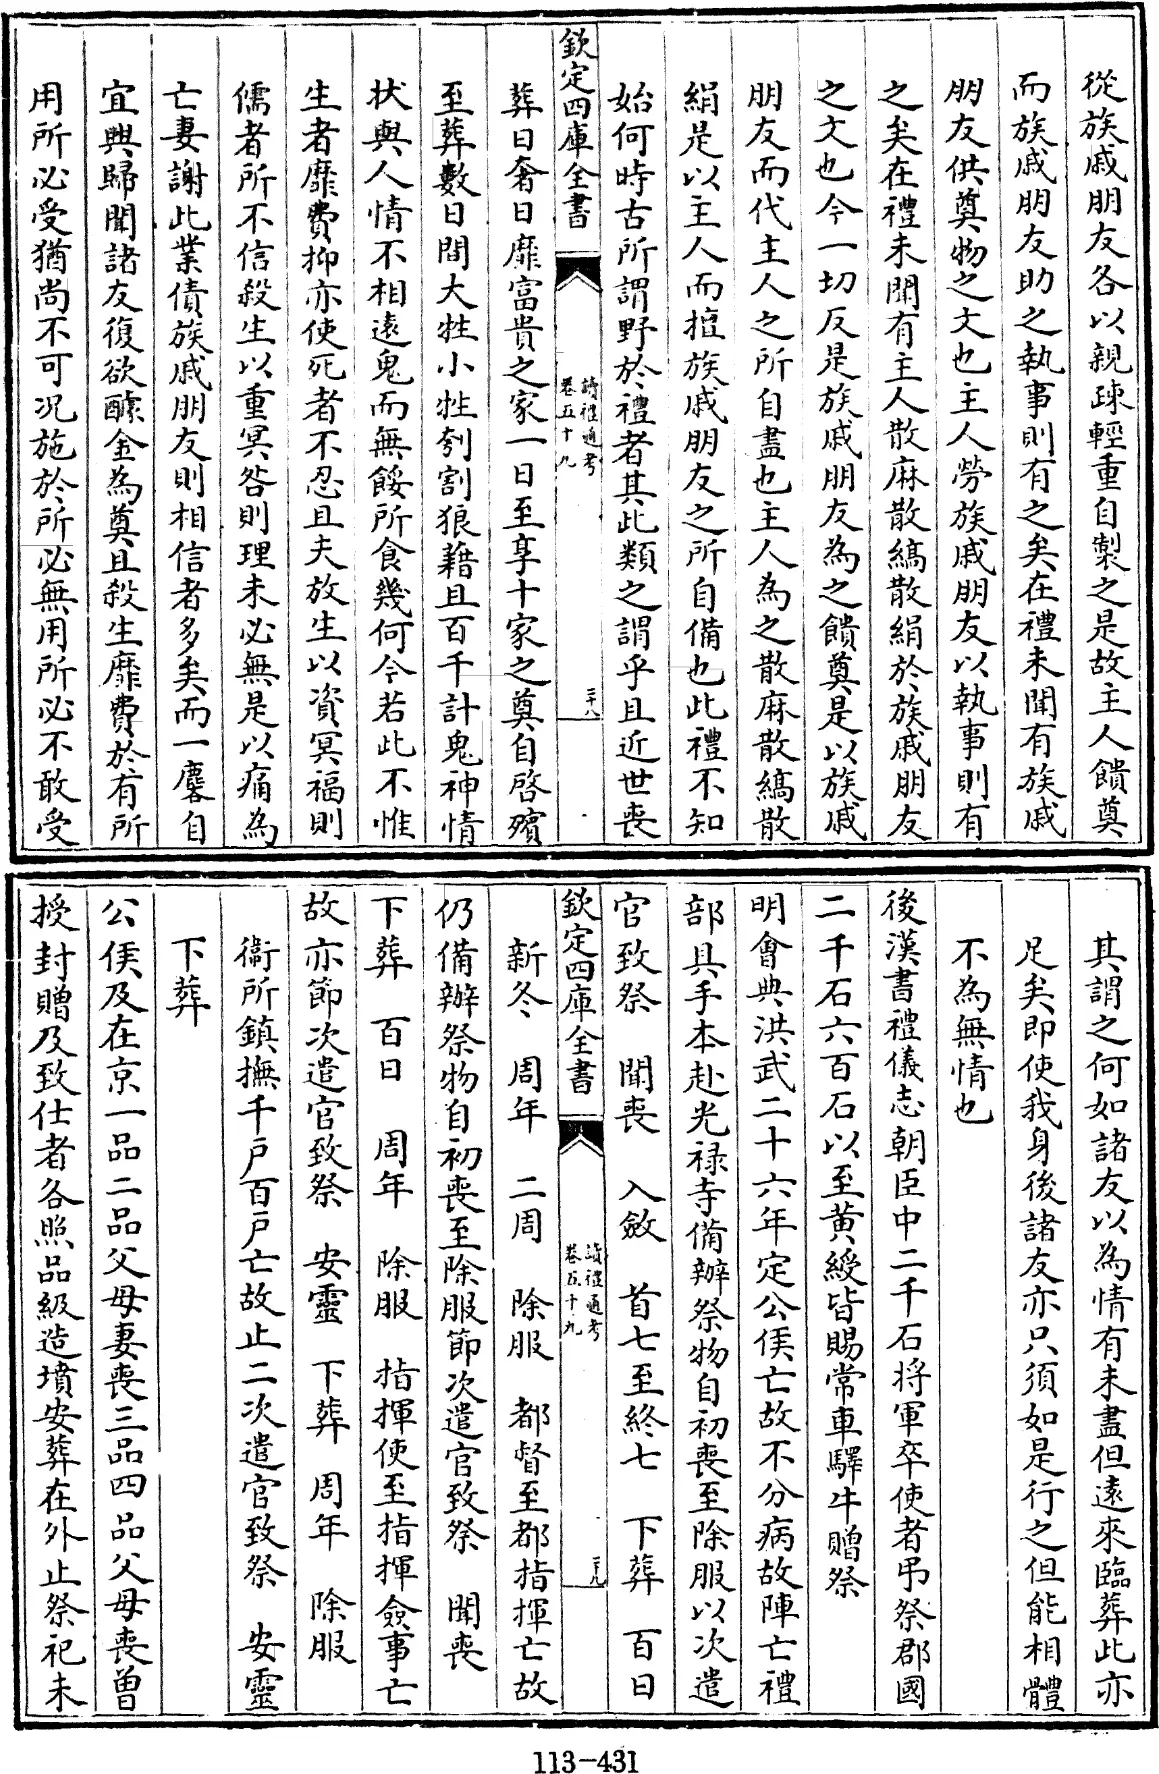 從族戚朋友各以親疎輕重自製之是故主人饋奠
而族戚朋友助之執事則有之矣在禮未聞有族戚
朋友供奠物之文也主人勞族戚朋友以執事則有
之矣在禮未聞有主人散麻散縞散絹於族戚朋友
之文也今一切反是族戚朋友為之饋奠是以族戚
朋友而代主人之所自盡也主人為之散麻散縞散
絹是以主人而擅族戚朋友之所自備也此禮不知
始何時古所謂野於禮者其此類之謂乎且近世喪
欽定四庫全書
讀禮通考
卷五十九
三十八
葬日奢日靡富貴之家一日至享十家之奠自啓殯
至葬數日間大牲小牲刳割狼藉且百千計鬼神情
狀與人情不相遠鬼而無餒所食幾何今若此不惟
生者靡費抑亦使死者不忍且夫放生以資冥福則
儒者所不信殺生以重冥咎則理未必無是以痛為
亡妻謝此業債族戚朋友則相信者多矣而一麐自
宜興歸聞諸友復欲醵金為奠且殺生靡費於有所
用所必受猶尚不可况施於所必無用所必不敢受
其謂之何如諸友以為情有未盡但遠來臨葬此亦
足矣即使我身後諸友亦只須如是行之但能相體
不為無情也
後漢書禮儀志朝臣中二千石將軍卒使者弔祭郡國
二千石六百石以至黄綬皆賜常車驛牛贈祭
明會典洪武二十六年定公侯亡故不分病故陣亡禮
部具手本赴光禄寺備辦祭物自初喪至除服以次遣
官致祭　聞喪　入斂　首七至終七　下葬　百日
欽定四庫全書
讀禮通考
卷五十九
三十九
新冬　周年　二周　除服　都督至都指揮亡故
仍備辦祭物自初喪至除服節次遣官致祭　聞喪
下葬　百日　周年　除服　指揮使至指揮僉事亡
故亦節次遣官致祭　安靈　下葬　周年　除服
衞所鎮撫千戸百戸亡故止二次遣官致祭　安靈
下葬
公侯及在京一品二品父母妻喪三品四品父母喪曽
授封贈及致仕者各照品級造墳安葬在外止祭祀未
113-431